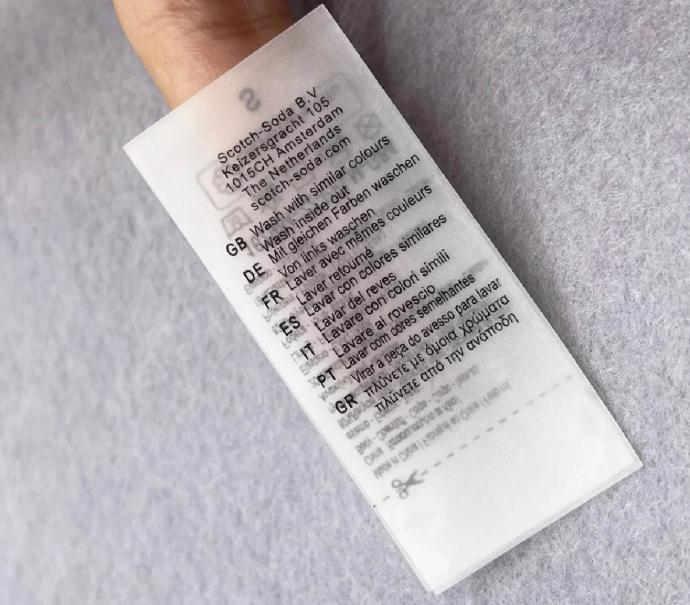 Scotch-Soda B.V
Keizersgracht 105
1015CH Amsterdam
The Netherlands
scotch-soda.com
GB Wash with similar colours
Wash inside out
DE Mit gleichen Farben waschen
Von links waschen
FR Laver avec mêmes couleurs
Laver retourné
ES Lavar con colores similares
Lavar del reves
IT Lavare con colori simili
Lavare al rovescio
PT Lavar com cores semelhantes
Virar a peça do avesso para lavar
GR πλύνετε με όμοια χρώματα
πλύνετε από την ανάποδη